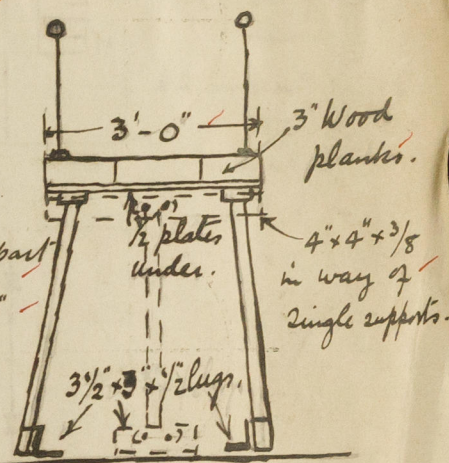 3'-0"
3" Wood
planks.
1/2 plates
under.
part
"
4" x 4" x 3/8
in way of
single supports.
3 1/2" x 3" x 1/2 lugs.